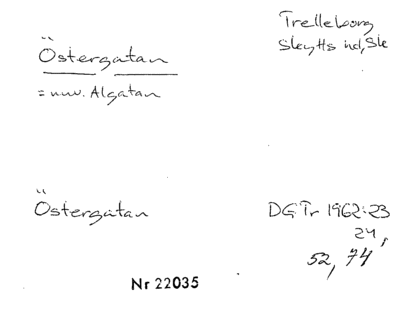 Östergatan
Trelleborg
Skytts hd, Sk
= nuv. Algatan
Östergatan
DGTr 1962:23
24,
52, 74
Nr 22035